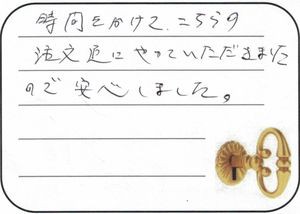 時間をかけて、こちらの
注文通にやっていただきました
ので安心しました。